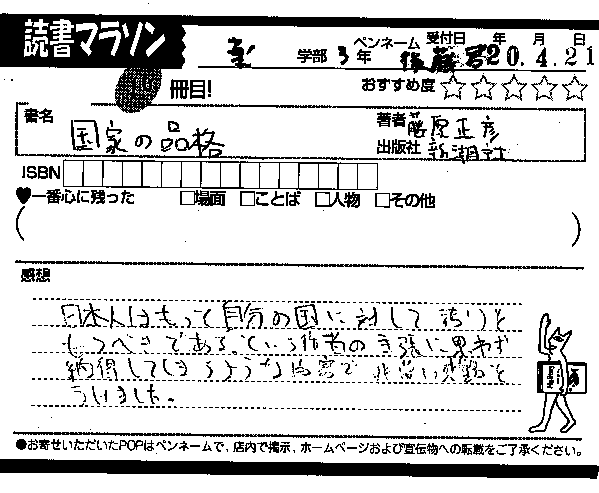 読書マラソン
学部 3年 ペンネーム 後藤君 受付日 20.年4.月21日
冊目!
おすすめ度☆☆☆☆☆
書名 国家の品格
著者 藤原正彦
出版社 新潮社
ISBN
♥一番心に残った □場面 □ことば □人物 □その他
( )
感想
日本人はもって自分の国に対して誇りを
もつべきである。という作者の主張に思わず
納得してしまうような内容で 非常に感動を
うけました。
●お寄せいただいたPOPはペンネームで、店内で掲示、ホームページおよび宣伝物への転載をご了承ください。